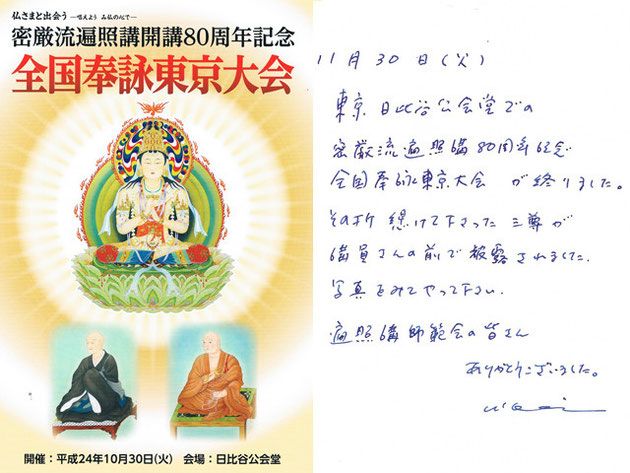 仏さまと出会う ―唱えよう み仏の心で―
密厳流遍照講開講80周年記念
全国奉詠東京大会
開催：平成24年10月30日(火)　会場：日比谷公会堂
11月30日(火)
東京日比谷公会堂での
密厳流遍照講80周年記念
全国奉詠東京大会 が終りました。
その折 懸けて下さった 三尊が
講員さんの前で披露されました.
写真をみてやって下さい.
遍照講師範会の皆さん
ありがとうございました。